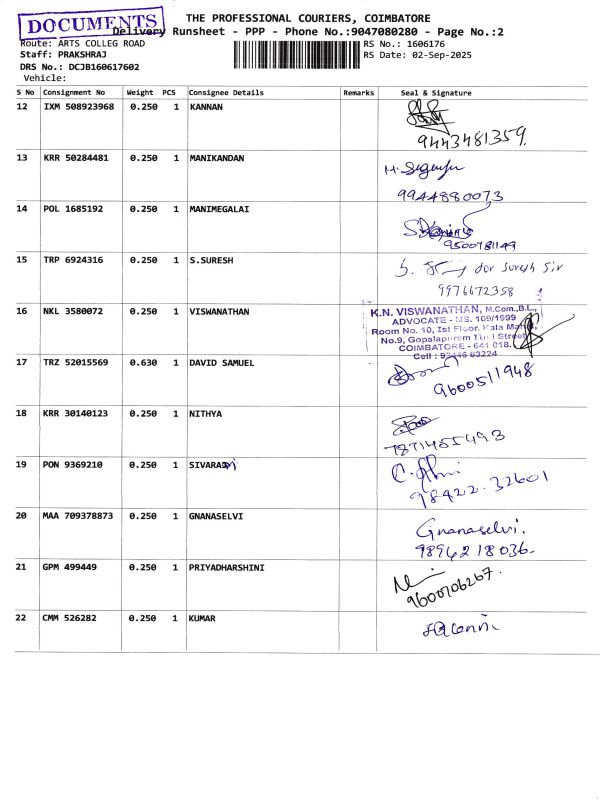 DOCUMENTS
THE PROFESSIONAL COURIERS, COIMBATORE
Delivery Runsheet - PPP - Phone No.:9047080280 - Page No.:2
Route: ARTS COLLEG ROAD
RS No.: 1606176
Staff: PRAKSHRAJ
RS Date: 02-Sep-2025
DRS No.: DCJB160617602
Vehicle:
S No Consignment No Weight PCS Consignee Details Remarks Seal & Signature
12 IXM 508923968 0.250 1 KANNAN
9443481359.
13 KRR 50284481 0.250 1 MANIKANDAN
9944880073
14 POL 1685192 0.250 1 MANIMEGALAI
9500781149
15 TRP 6924316 0.250 1 S.SURESH
for Suresh Sir
9976672358
16 NKL 3580072 0.250 1 VISWANATHAN
K.N. VISWANATHAN, M.Com.,B.L.,
ADVOCATE - MS. 109/1999
Room No. 10, Ist Floor, Kala
No.9, Gopalapuram Street
COIMBATORE - 641 018.
Cell : 63224
17 TRZ 52015569 0.630 1 DAVID SAMUEL
9600511948
18 KRR 30140123 0.250 1 NITHYA
7871455493
19 PON 9369210 0.250 1
98422.32601
20 MAA 709378873 0.250 1 GNANASELVI
Gnanaselvi.
9894218036.
21 GPM 499449 0.250 1 PRIYADHARSHINI
9600706267.
22 CMM 526282 0.250 1 KUMAR